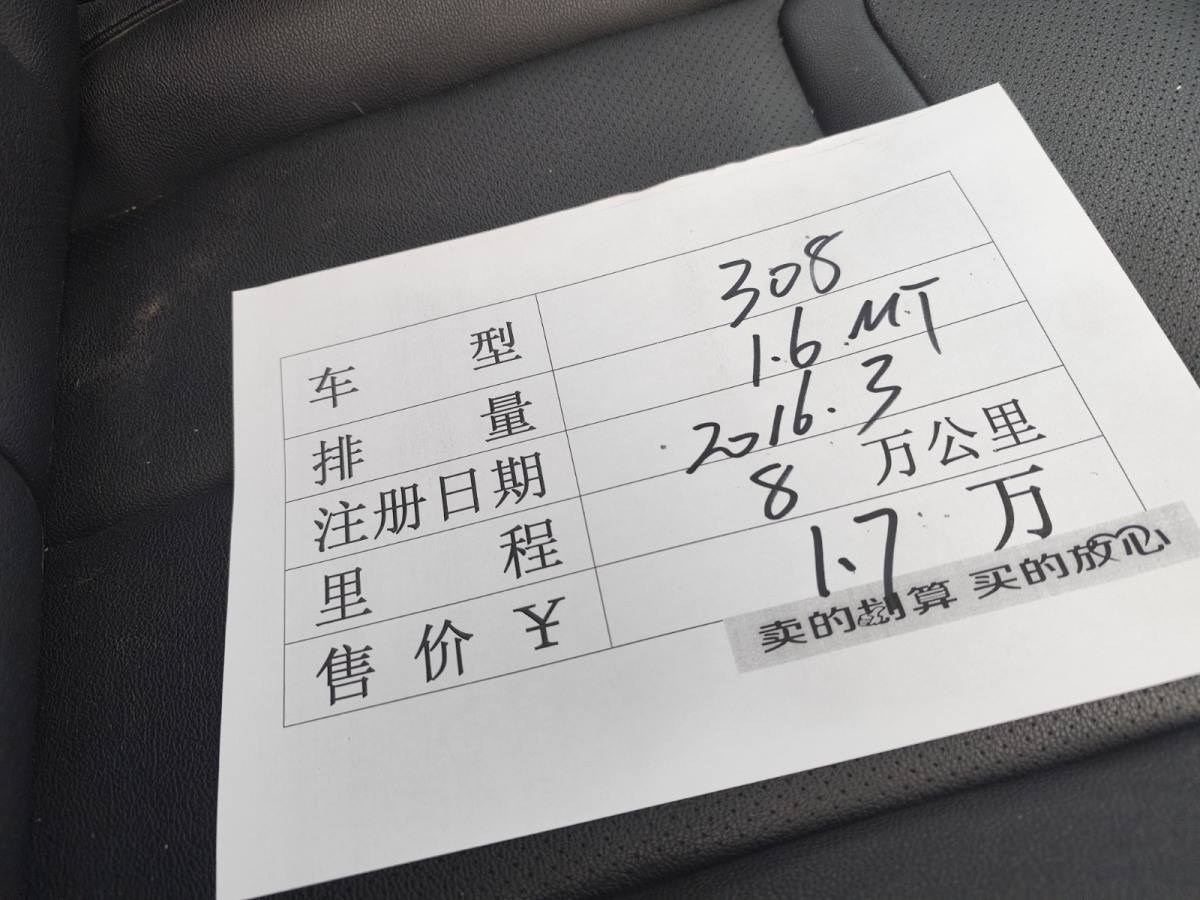 车型 308
排量 1.6 MT
注册日期 2016.3
里程 8 万公里
售价¥ 1.7 万
卖的划算 买的放心